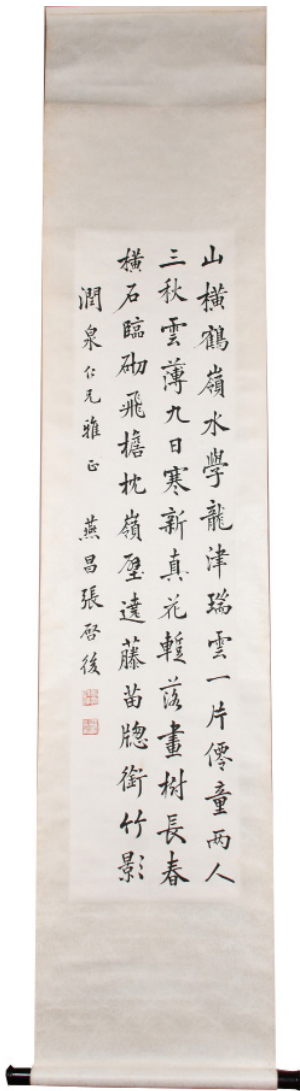 山橫鶴嶺水學龍津瑞雲一片僊童两人
三秋雲薄九日寒新真花蹔落畫樹長春
橫石臨砌飛檐枕嶺壁遶藤苗牕銜竹影
潤泉仁兄雅正 燕昌張啓後